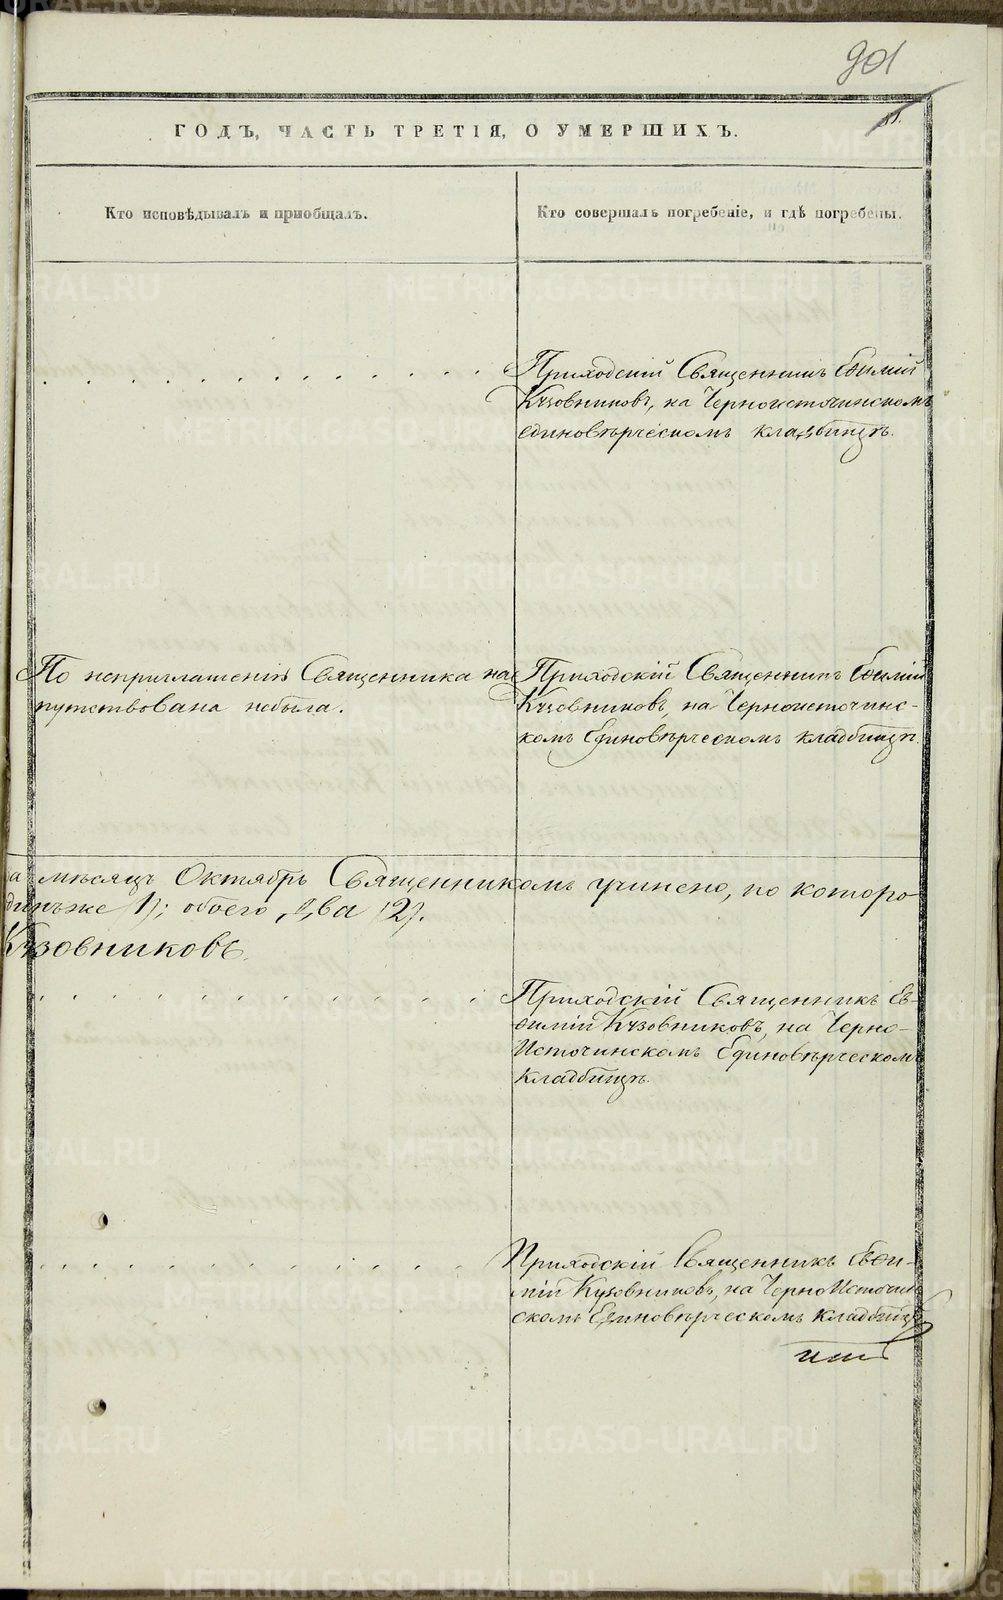 901
ГОДЪ, ЧАСТЬ ТРЕТІЯ, О УМЕРШИХЪ.
Кто исповѣдывалъ и пріобщалъ.
Кто совершалъ погребеніе, и гдѣ погребены.
Приходскій Священникъ Евѳимій
Кузовниковъ, на Черноисточинскомъ
единовѣрческомъ кладбищѣ.
По неприглашенію Священника на
путствована небыла.
Приходскій Священникъ Евѳимій
Кузовниковъ, на Черноисточинс-
комъ Единовѣрческомъ кладбищѣ.
а мѣсяцъ Октябрь Священникомъ учинено, по которо
динъже /1/; обоего два /2/.
Кузовниковъ.
Приходскій Священникъ Ев-
ѳимій Кузовниковъ, на Черно-
Источинскомъ Единовѣрческомъ
кладбищѣ.
Приходскій Священникъ Евѳи-
мій Кузовниковъ, на ЧерноИсточин
скомъ Единовѣрческомъ кладби
щѣ
METRIKI.GASO-URAL.RU